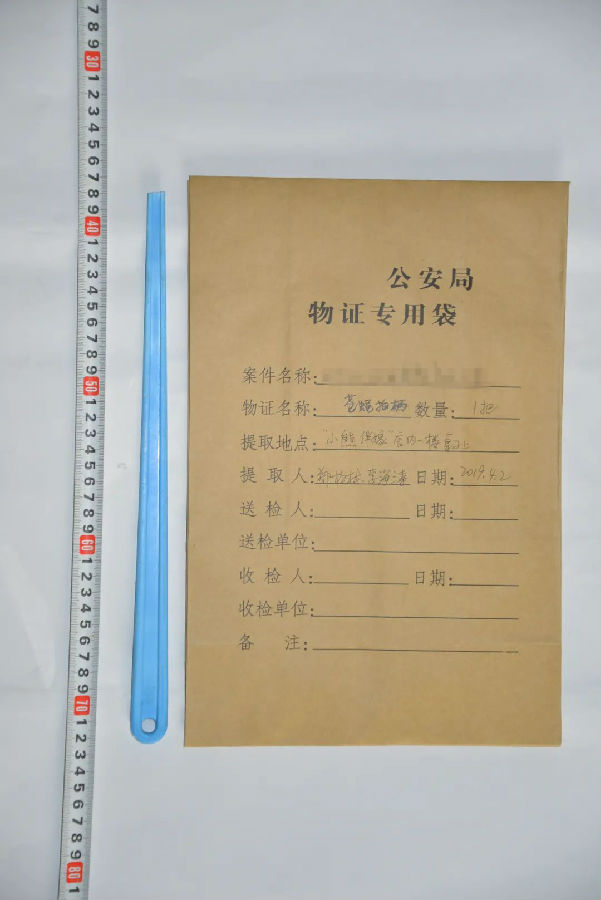 7
8
9
30
1
2
3
4
5
6
7
8
9
40
1
2
3
4
5
6
7
8
9
50
1
2
3
4
5
6
7
8
9
60
1
2
3
4
5
6
7
8
9
70
1
2
3
4
5
6
7
8
9
80
1
公安局
物证专用袋
案件名称:
物证名称: 苍蝇拍柄 数量: 1把
提取地点: "小熊 店内一楼桌子上
提取人: 李海涛 日期: 2019.4.2
送检人: 日期:
送检单位:
收检人: 日期:
收检单位:
备注: